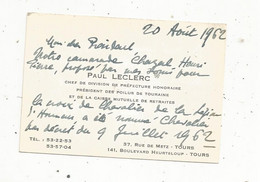 20 Août 1962
Mon
Notre camarade Chazal Henri
proposé par mes soins pour
PAUL LECLERC
CHEF DE DIVISION DE PRÉFECTURE HONORAIRE
PRÉSIDENT DES POILUS DE TOURAINE
ET DE LA CAISSE MUTUELLE DE RETRAITES
la croix de Chevalier de la Légion
d'Honneur, a été nommé Chevalier
par décret du 9 Juillet 1962
TEL. : 53-22-53
53-57-04
57, RUE DE METZ - TOURS
141, BOULEVARD HEURTELOUP - TOURS